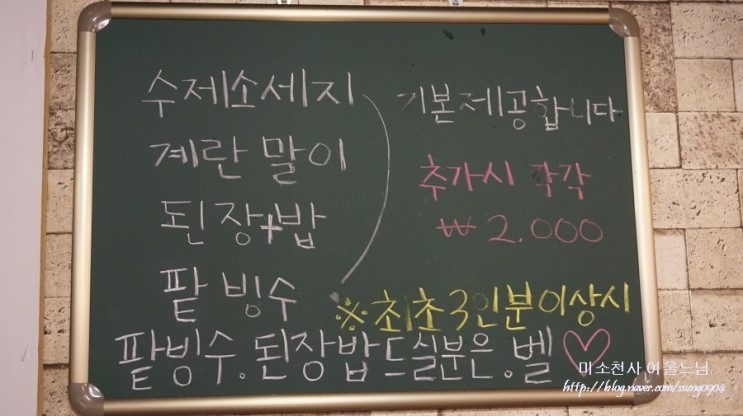 수제소세지
계란 말이
된장+밥
팥 빙수
기본제공합니다
추가시 각각
₩ 2.000
※최초3인분이상시
팥빙수.된장밥드실분은.벨♡
미소천사 여울느님.
http://blog.naver.com/ssung0904